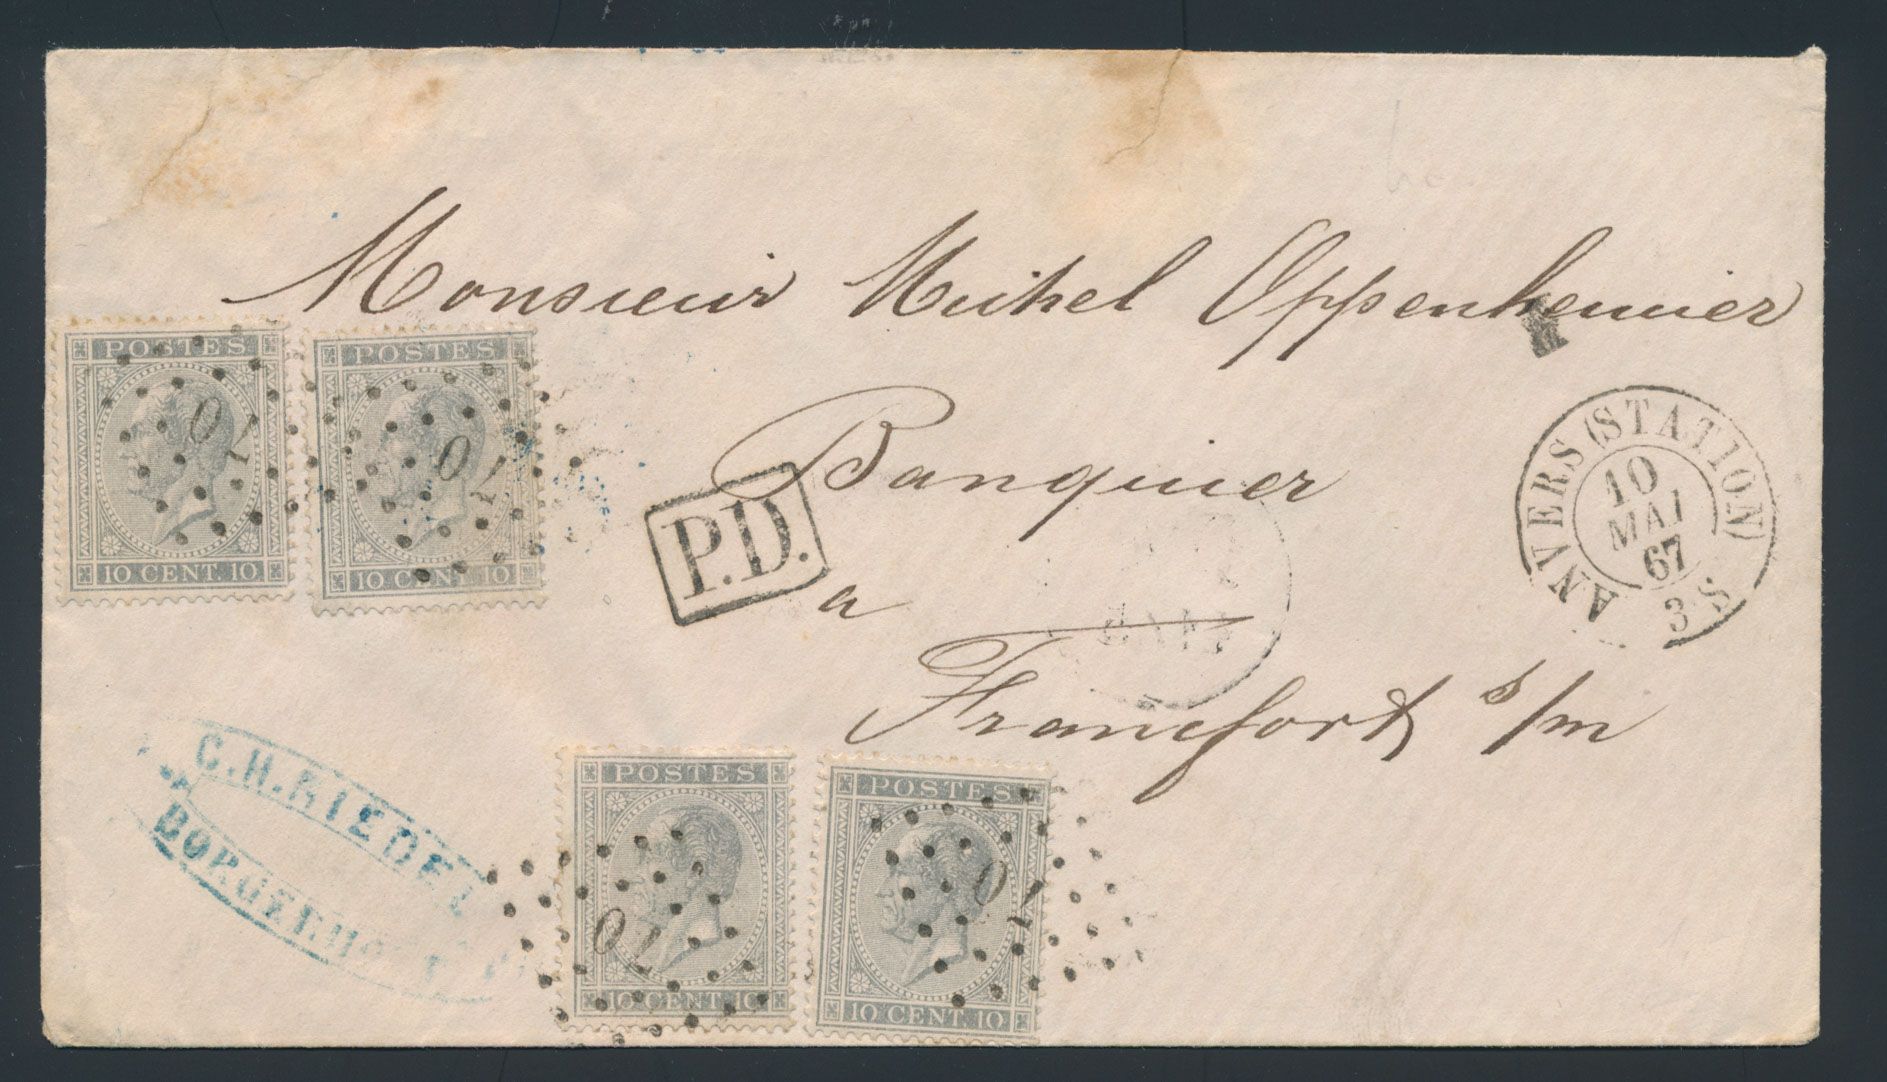 Monsieur Michel Oppenheimer
Banquier
a
Francfort s/m
POSTES
10 CENT. 10
10
POSTES
10 CENT. 10
10
P.D.
ANVERS (STATION)
10
MAI
67
3 S
C.H. RIEDEL
BORGERHOUT
POSTES
10 CENT. 10
10
POSTES
10 CENT. 10
10